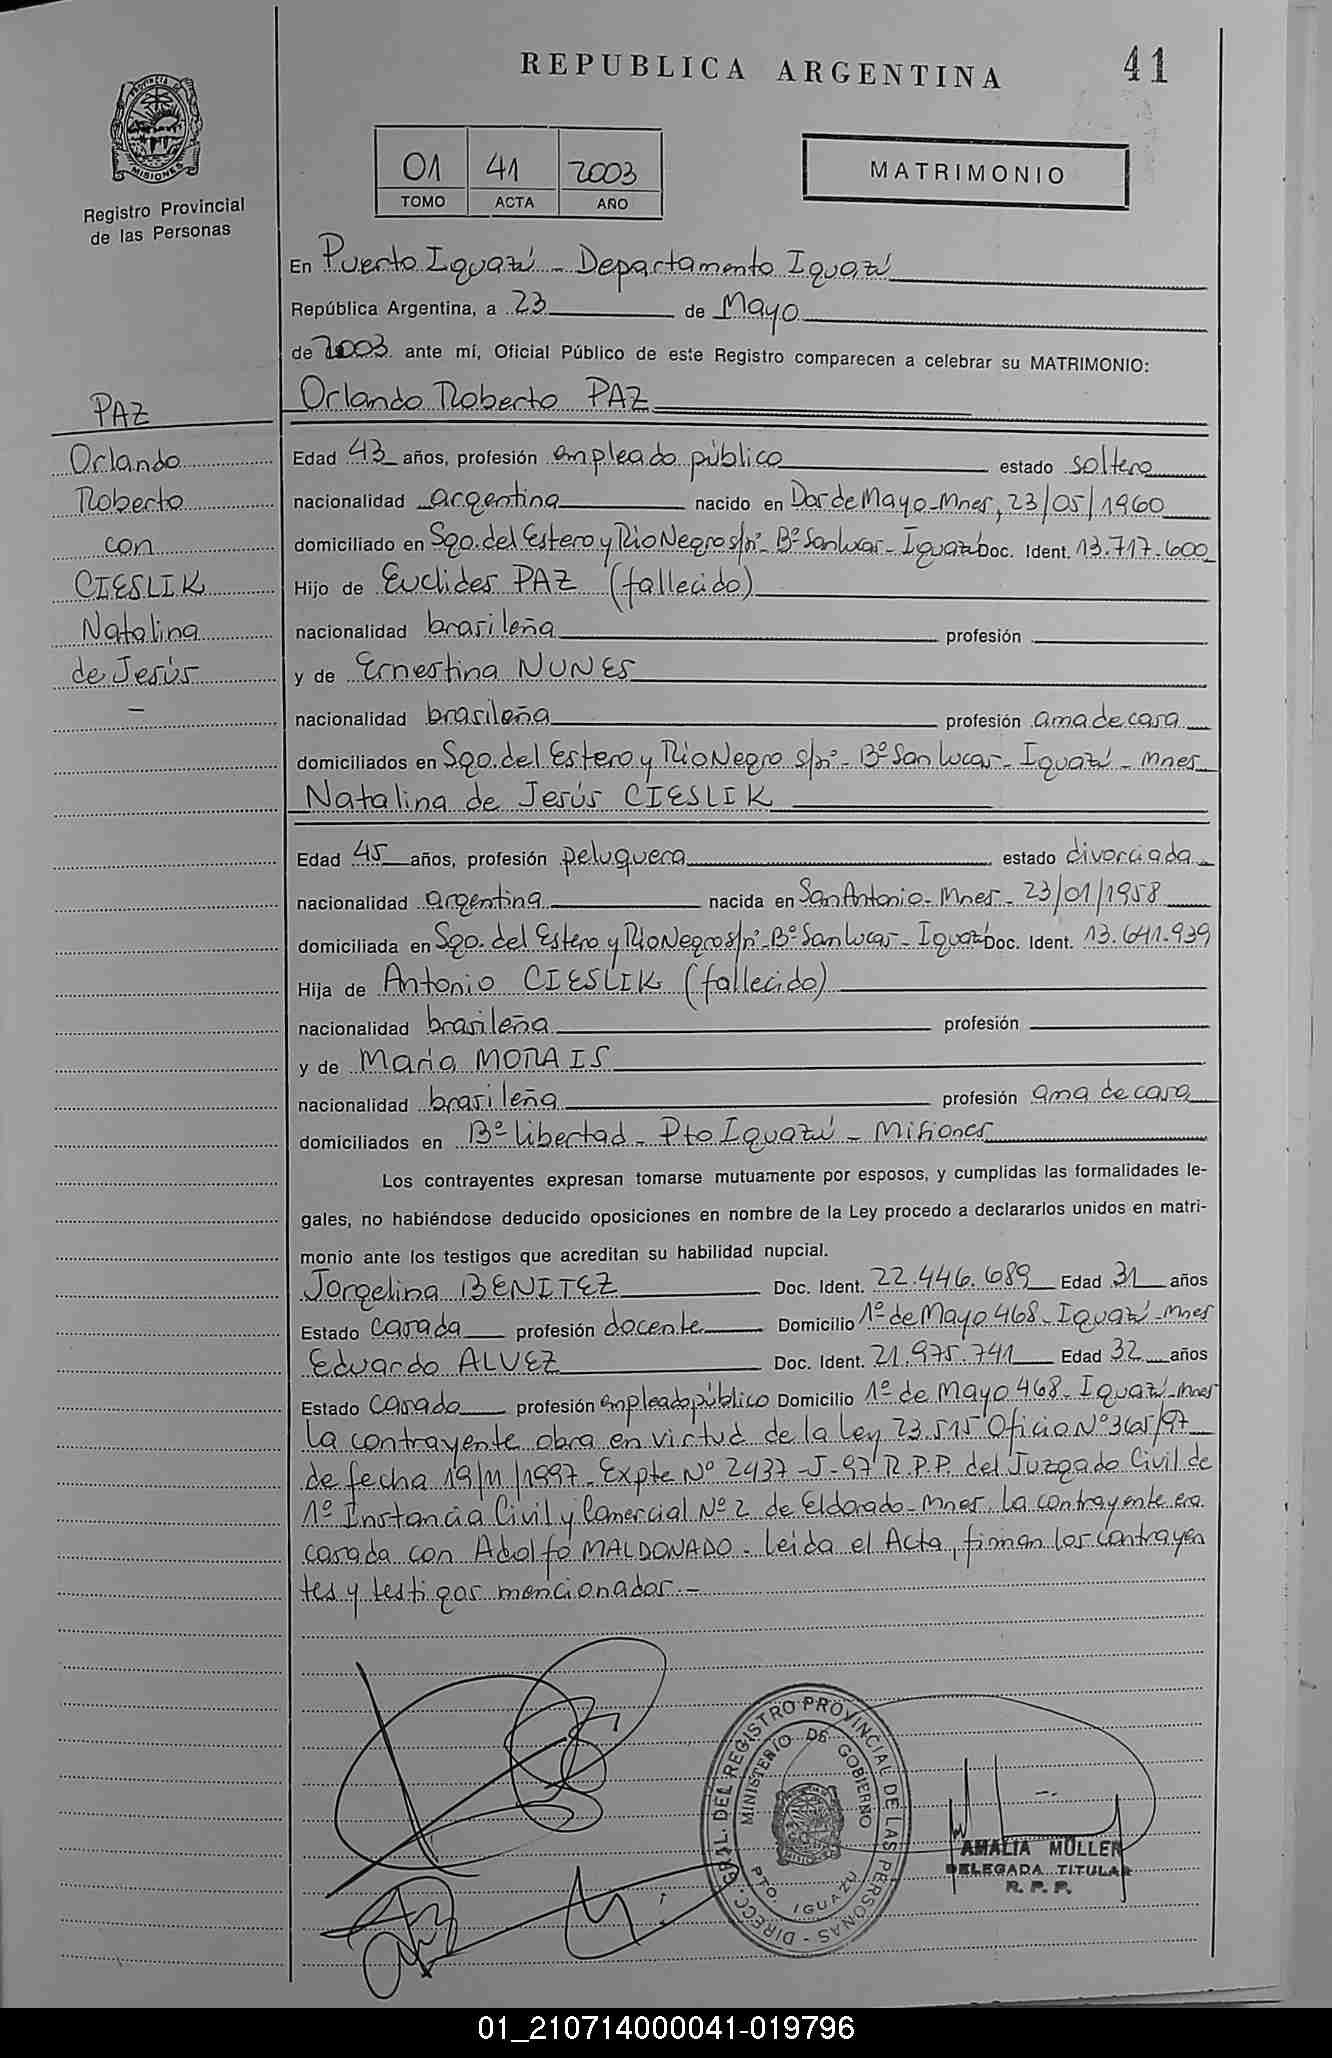 REPUBLICA ARGENTINA
41
PROVINCIA DE
MISIONES
Registro Provincial
de las Personas
01 41 2003
TOMO ACTA AÑO
MATRIMONIO
En Puerto Iguazú - Departamento Iguazú
República Argentina, a 23 de Mayo
de 2003 ante mí, Oficial Público de este Registro comparecen a celebrar su MATRIMONIO:
Orlando Roberto PAZ
PAZ
Orlando
Roberto
con
CIESLIK
Natalina
de Jesús
-
Edad 43 años, profesión empleado público estado soltero
nacionalidad argentina nacido en Dos de Mayo-Mnes, 23/05/1960
domiciliado en Sgo. del Estero y Rio Negro s/nº- Bº San Lucas- Iguazú Doc. Ident. 13.717.600
Hijo de Euclides PAZ (fallecido)
nacionalidad brasileña profesión
y de Ernestina NUNES
nacionalidad brasileña profesión ama de casa
domiciliados en Sgo. del Estero y Rio Negro s/nº- Bº San Lucas- Iguazú - Mnes
Natalina de Jesús CIESLIK
Edad 45 años, profesión peluquera estado divorciada
nacionalidad argentina nacida en San Antonio- Mnes- 23/01/1958
domiciliada en Sgo. del Estero y Rio Negro s/nº- Bº San Lucas- Iguazú Doc. Ident. 13.641.939
Hija de Antonio CIESLIK (fallecido)
nacionalidad brasileña profesión
y de Maria MORAIS
nacionalidad brasileña profesión ama de casa
domiciliados en Bº libertad- Pto Iguazú - Misiones
Los contrayentes expresan tomarse mutuamente por esposos, y cumplidas las formalidades le-
gales, no habiéndose deducido oposiciones en nombre de la Ley procedo a declararlos unidos en matri-
monio ante los testigos que acreditan su habilidad nupcial.
Jorgelina BENITEZ Doc. Ident. 22.446.689 Edad 31 años
Estado casada profesión docente Domicilio 1º de Mayo 468- Iguazú-Mnes
Eduardo ALVEZ Doc. Ident. 21.975.741 Edad 32 años
Estado casado profesión empleado público Domicilio 1º de Mayo 468- Iguazú-Mnes
La contrayente obra en virtud de la Ley 23.515 Oficio Nº 365/97
de fecha 19/11/1997- Expte Nº 2437-J-97 R.P.P. del Juzgado Civil de
1º Instancia Civil y Comercial Nº 2 de Eldorado-Mnes. La contrayente era
casada con Adolfo MALDONADO- Leida el Acta, firman los contrayen
tes y testigos mencionados.-
DIRECC. GRAL. DEL REGISTRO PROVINCIAL DE LAS PERSONAS -
MINISTERIO DE GOBIERNO
PTO. IGUAZU
AMALIA MÜLLER
DELEGADA TITULAR
R. P. P.
01_210714000041-019796